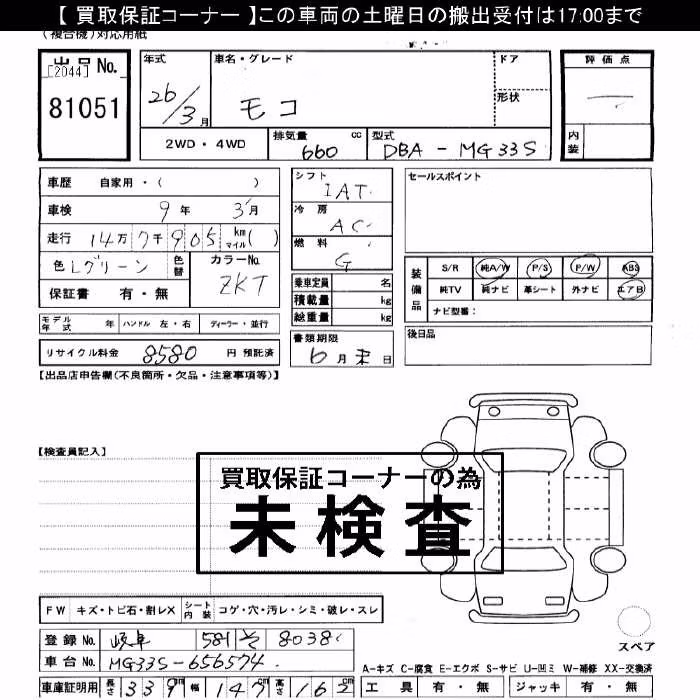 【 買取保証コーナー 】この車両の土曜日の搬出受付は17:00まで
(複合機)対応用紙
出品 No.
[2044]
81051
年式
26/3月
車名・グレード
モコ
ドア
形状
評価点
内装
2WD・4WD
排気量 660 cc
型式 DBA - MG33S
車歴 自家用・( )
車検 9年 3月
走行 14万 7千 905 km マイル ( )
色 Lグリーン 色替
カラーNo. ZKT
保証書 有・無
シフト IAT
冷房 AC
燃料 G
乗車定員 名
積載量 kg
総重量 kg
書類期限
6月末日
セールスポイント
装備品
S/R 純A/W P/S P/W ABS
純TV 純ナビ 革シート 外ナビ エアB
ナビ型番:
後日品
モデル年式 年 ハンドル 左・右 ディーラー・並行
リサイクル料金 8580 円 預託済
【出品店申告欄(不良箇所・欠品・注意事項等)】
【検査員記入】
買取保証コーナーの為
未検査
FW キズ・トビ石・割レX シート内装 コゲ・穴・汚レ・シミ・破レ・スレ
登録 No. 岐阜 581 そ 8038
車台 No. MG33S-656574
スペア
A-キズ C-腐食 E-エクボ S-サビ U-凹ミ W-補修 XX-交換済
車庫証明用 長さ 339cm 幅 147cm 高さ 162cm
工具 有・無 ジャッキ 有・無